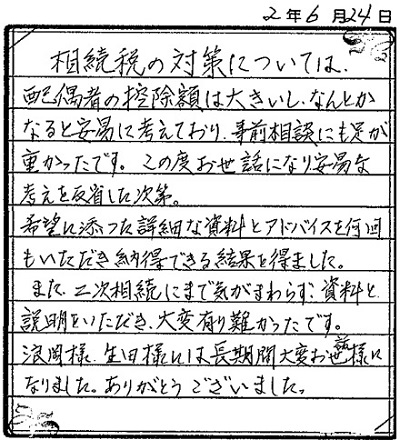 2年6月24日
相続税の対策については、
配偶者の控除額は大きいし、なんとか
なると安易に考えており、事前相談にも足が
重かったです。この度お世話になり安易な
考えを反省した次第。
希望に添った詳細な資料とアドバイスを何回
もいただき納得できる結果を得ました。
また、二次相続にまで気がまわらず、資料と
説明をいただき、大変有り難かったです。
浪岡様、生田様には長期間大変お世話様に
なりました。ありがとうございました。